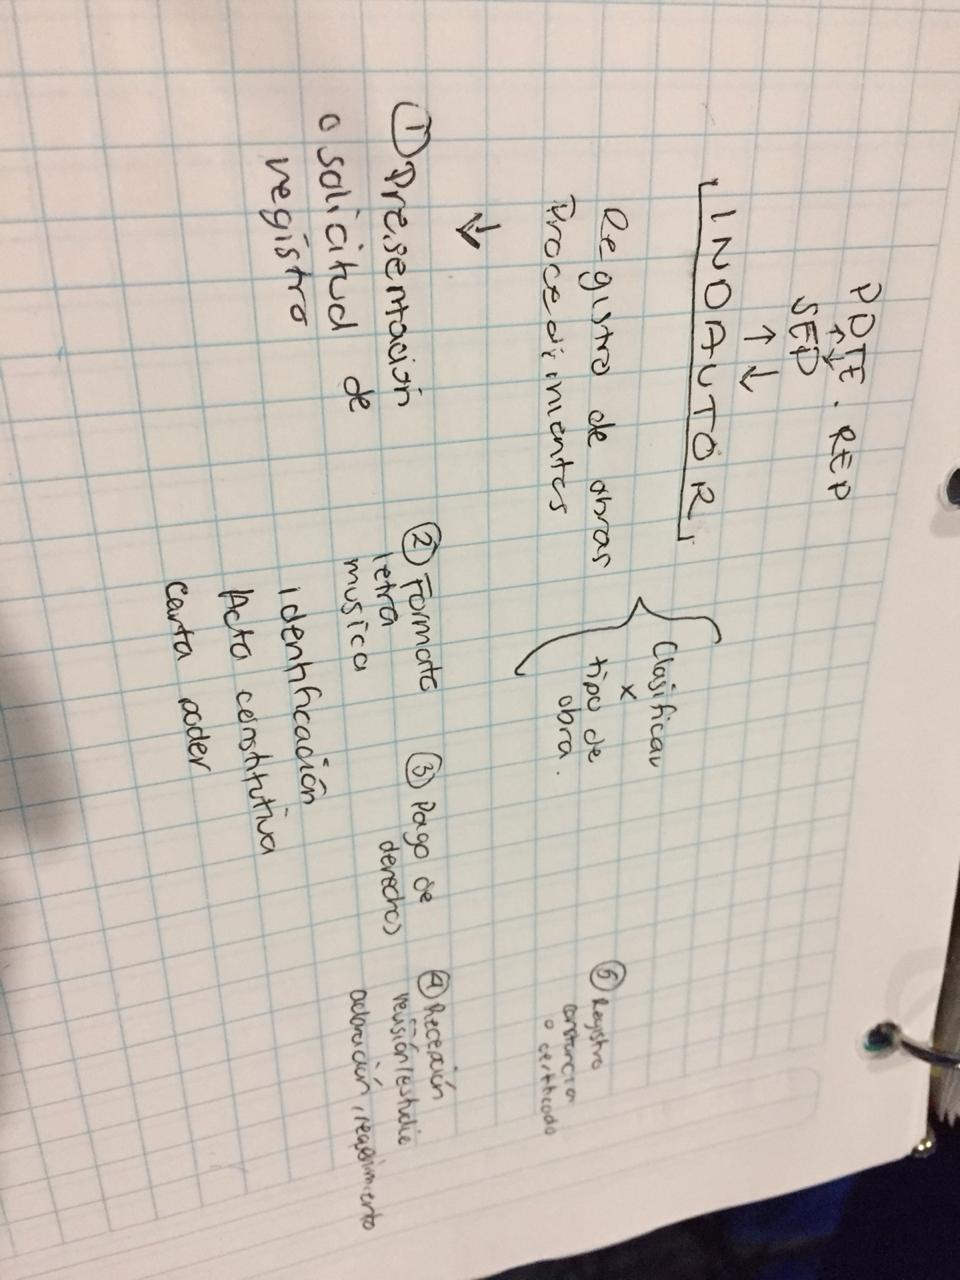 PDTE. REP
↑↓
SEP
↑ ↓
INDAUTOR
Registro de obras
Procedimientos
Clasificar
x
tipo de
obra.
↓
① Presentación
o solicitud de
registro
② Formato
letra
musica
identificación
Acta constitutiva
Carta poder
③ Pago de
derechos
④ Recepción
revisión/estudio
aclaración, requerimiento
⑤ Registro
constancia
o certificado